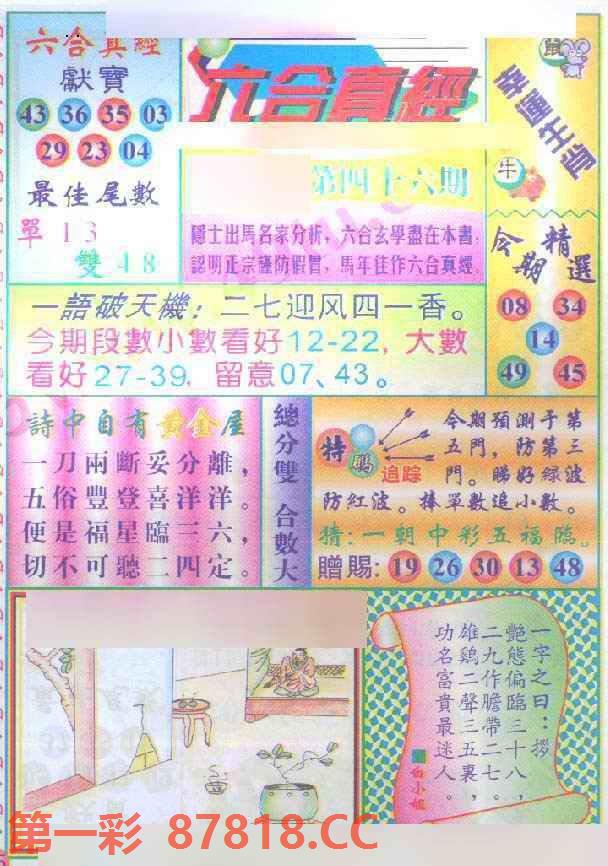 六合真經
獻寶
43 36 35 03
29 23 04
最佳尾數
單 1 3
雙 4 8
六合真經
第四十六期
隱士出馬名家分析，六合玄學盡在本書；
認明正宗謹防假冒，馬年佳作六合真經。
鼠
幸運生肖
牛
今期精選
08 34
14
49 45
一語破天機：二七迎风四一香。
今期段數小數看好12-22，大數
看好27-39，留意07、43。
詩中自有黃金屋
一刀兩斷妥分離，
五俗豐登喜洋洋。
便是福星臨三六，
切不可聽二四定。
總分雙 合數大
特碼
追踪
今期預測于第
五門，防第三
門。睇好綠波
防紅波。捧單數追小數。
猜：一朝中彩五福臨。
贈賜：19 26 30 13 48
一字之曰：拶
艷態偏臨三十八，
二九作膽帶二七。
雄鷄二聲三五裏，
功名富貴最迷人。
白小姐
第一彩 87818.CC